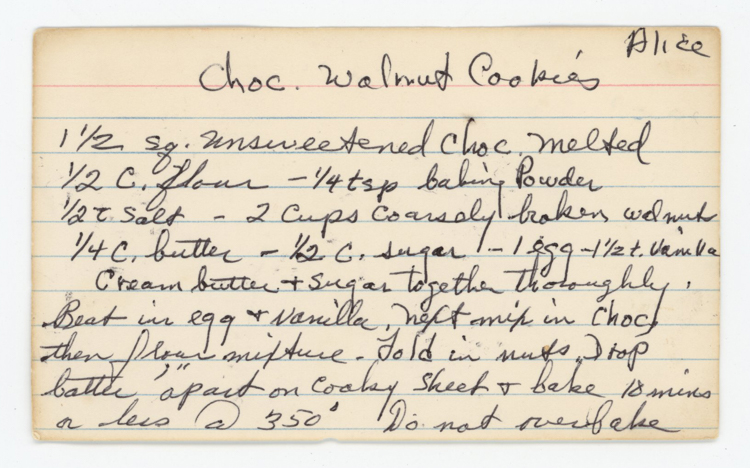 Alice
Choc. Walnut Cookies
1 1/2 sq. unsweetened Choc. melted
1/2 C. flour - 1/4 tsp baking Powder
1/2 t salt - 2 Cups Coarsely broken walnuts
1/4 C. butter - 1/2 C. sugar - 1 egg - 1 1/2 t. Vanilla
Cream butter + Sugar together thoroughly.
Beat in egg + Vanilla, next mix in Choc,
then flour mixture. Fold in nuts. Drop
batter 1" apart on Cooky Sheet + bake 10 mins
or less @ 350° Do not overbake